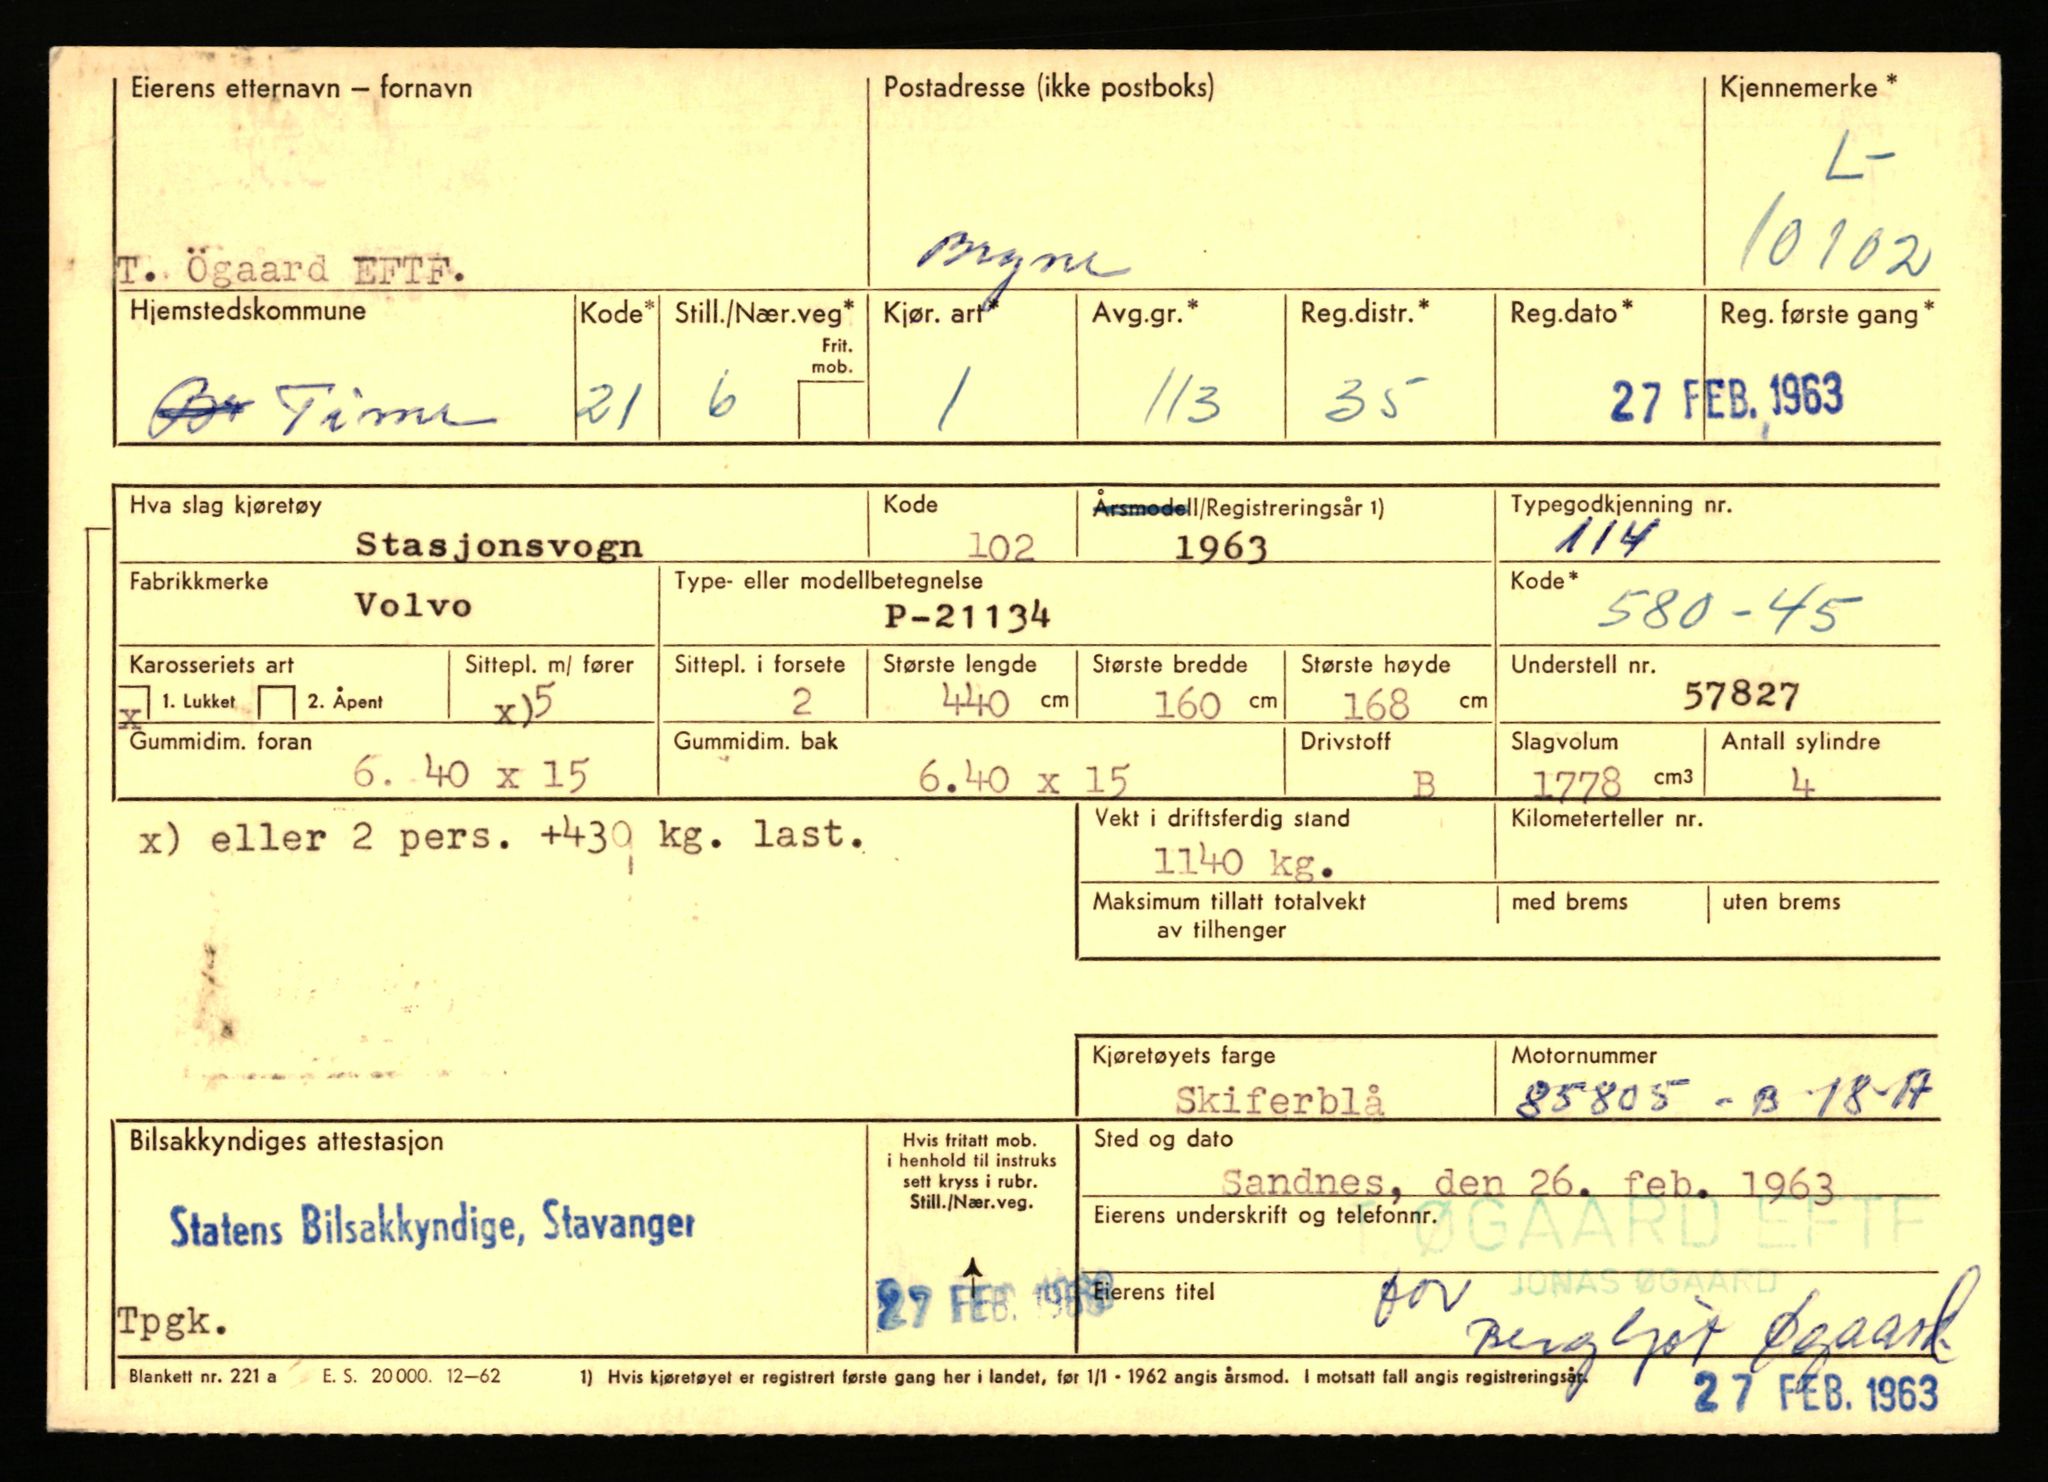 Eierens etternavn – fornavn
Postadresse (ikke postboks)
Kjennemerke*
L-
10102
T. Ögaard EFTF.
Bryne
Hjemstedskommune
Kode*
Still./Nær.veg*
Frit. mob.
Kjør. art*
Avg.gr.*
Reg.distr.*
Reg.dato*
Reg. første gang*
Time
21
6
1
113
35
27 FEB. 1963
Hva slag kjøretøy
Kode
Årsmodell/Registreringsår 1)
Typegodkjenning nr.
Stasjonsvogn
102
1963
114
Fabrikkmerke
Type- eller modellbetegnelse
Kode*
Volvo
P-21134
580-45
Karosseriets art
Sittepl. m/ fører
Sittepl. i forsete
Største lengde
Største bredde
Største høyde
Understell nr.
x 1. Lukket 2. Åpent
x)5
2
440 cm
160 cm
168 cm
57827
Gummidim. foran
Gummidim. bak
Drivstoff
Slagvolum
Antall sylindre
6. 40 x 15
6.40 x 15
B
1778 cm3
4
x) eller 2 pers. +430 kg. last.
Vekt i driftsferdig stand
Kilometerteller nr.
1140 kg.
Maksimum tillatt totalvekt av tilhenger
med brems
uten brems
Kjøretøyets farge
Motornummer
Skiferblå
85805 - B-18-A
Bilsakkyndiges attestasjon
Hvis fritatt mob.
i henhold til instruks
sett kryss i rubr.
Still./Nær.veg.
Sted og dato
Sandnes, den 26. feb. 1963
Statens Bilsakkyndige, Stavanger
Eierens underskrift og telefonnr.
T ØGAARD EFTF
JONAS ØGAARD
27 FEB. 1963
Eierens titel
for
Bergljot Øgaard
Tpgk.
Blankett nr. 221 a E. S. 20 000. 12–62
1) Hvis kjøretøyet er registrert første gang her i landet, før 1/1 - 1962 angis årsmod. I motsatt fall angis registreringsår.
27 FEB. 1963